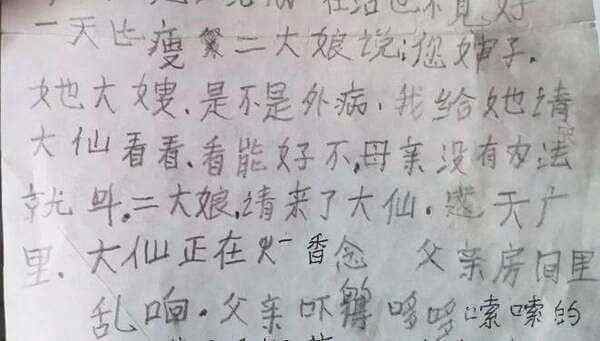 也不見好
一天比瘦 二大娘说:您婶子.
她大嫂.是不是外病,我给她请
大仙看看.看能好不.母亲没有办法
就叫.二大娘.请来了大仙. 天广
里.大仙正在 香念 父亲房间里
乱响.父亲吓得哆哆嗦嗦的